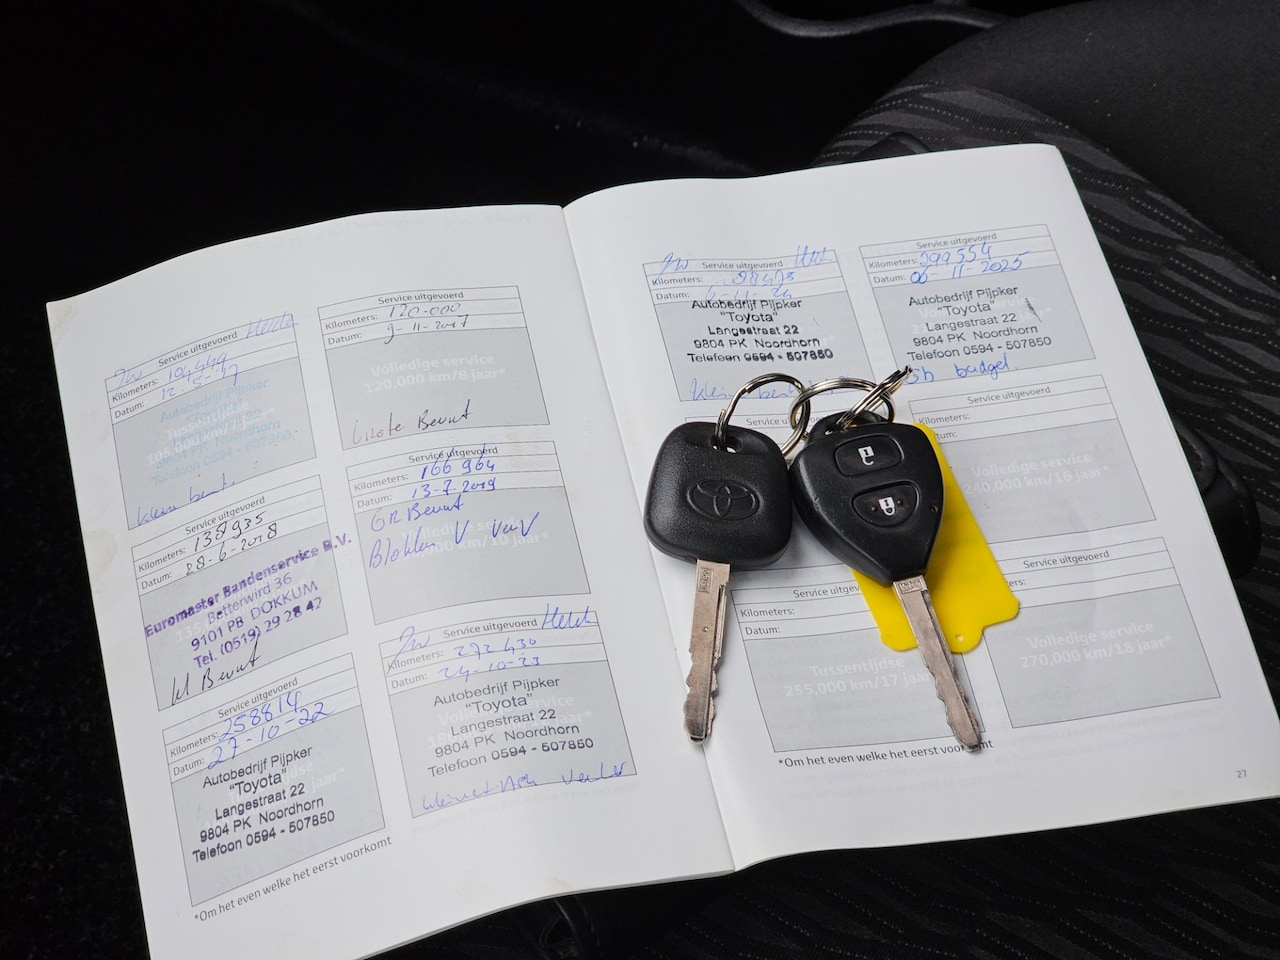 Service uitgevoerd
Kilometers: 104449
Datum: 12-5-17
Autobedrijf Pijpker
Tussentijds
105,000 km/7 jaar
Noordhorn
Telefoon 0594 - 507850
Service uitgevoerd
Kilometers: 120-000
Datum: 9-11-2017
Volledige service
120,000 km/8 jaar*
Grote Beurt
Service uitgevoerd
Kilometers: 138935
Datum: 28-6-2018
Euromaster Bandenservice B.V.
Betterwird 36
9101 PB DOKKUM
Tel. (0519) 29 28 42
kl Beurt
Service uitgevoerd
Kilometers: 166 964
Datum: 13-7-2019
GR Beurt
Blokken V
Service uitgevoerd
Kilometers: 258814
Datum: 27-10-22
Autobedrijf Pijpker
"Toyota"
Langestraat 22
9804 PK Noordhorn
Telefoon 0594 - 507850
Service uitgevoerd
Kilometers: 272 430
Datum: 24-10-23
Autobedrijf Pijpker
"Toyota"
Langestraat 22
9804 PK Noordhorn
Telefoon 0594 - 507850
*Om het even welke het eerst voorkomt
Service uitgevoerd
Kilometers:
Datum:
Autobedrijf Pijpker
"Toyota"
Langestraat 22
9804 PK Noordhorn
Telefoon 0594 - 507850
Service uitgevoerd
Kilometers: 299554
Datum: 06-11-2025
Autobedrijf Pijpker
"Toyota"
Langestraat 22
9804 PK Noordhorn
Telefoon 0594 - 507850
budget.
Service uitgevoerd
Kilometers:
Volledige service
240,000 km/16 jaar*
Kilometers:
Datum:
Tussentijdse
255,000 km/17 jaar
Service uitgevoerd
Volledige service
270,000 km/18 jaar*
*Om het even welke het eerst voorkomt
27